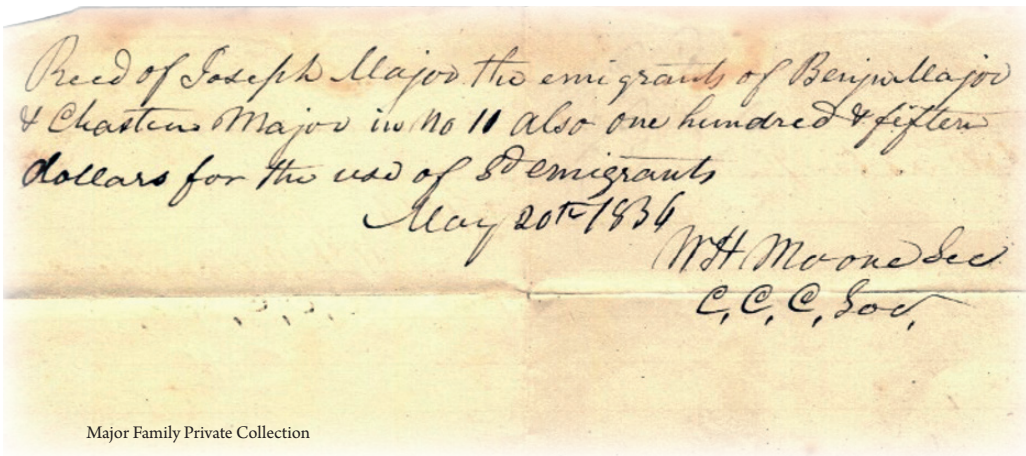 Recd of Joseph Major the emigrants of Benjn Major
& Chasten Major in No 11 also one hundred & fifteen
dollars for the use of sd emigrants
May 20th 1836
WH Moore Sec
C. C. C. Soc.
Major Family Private Collection